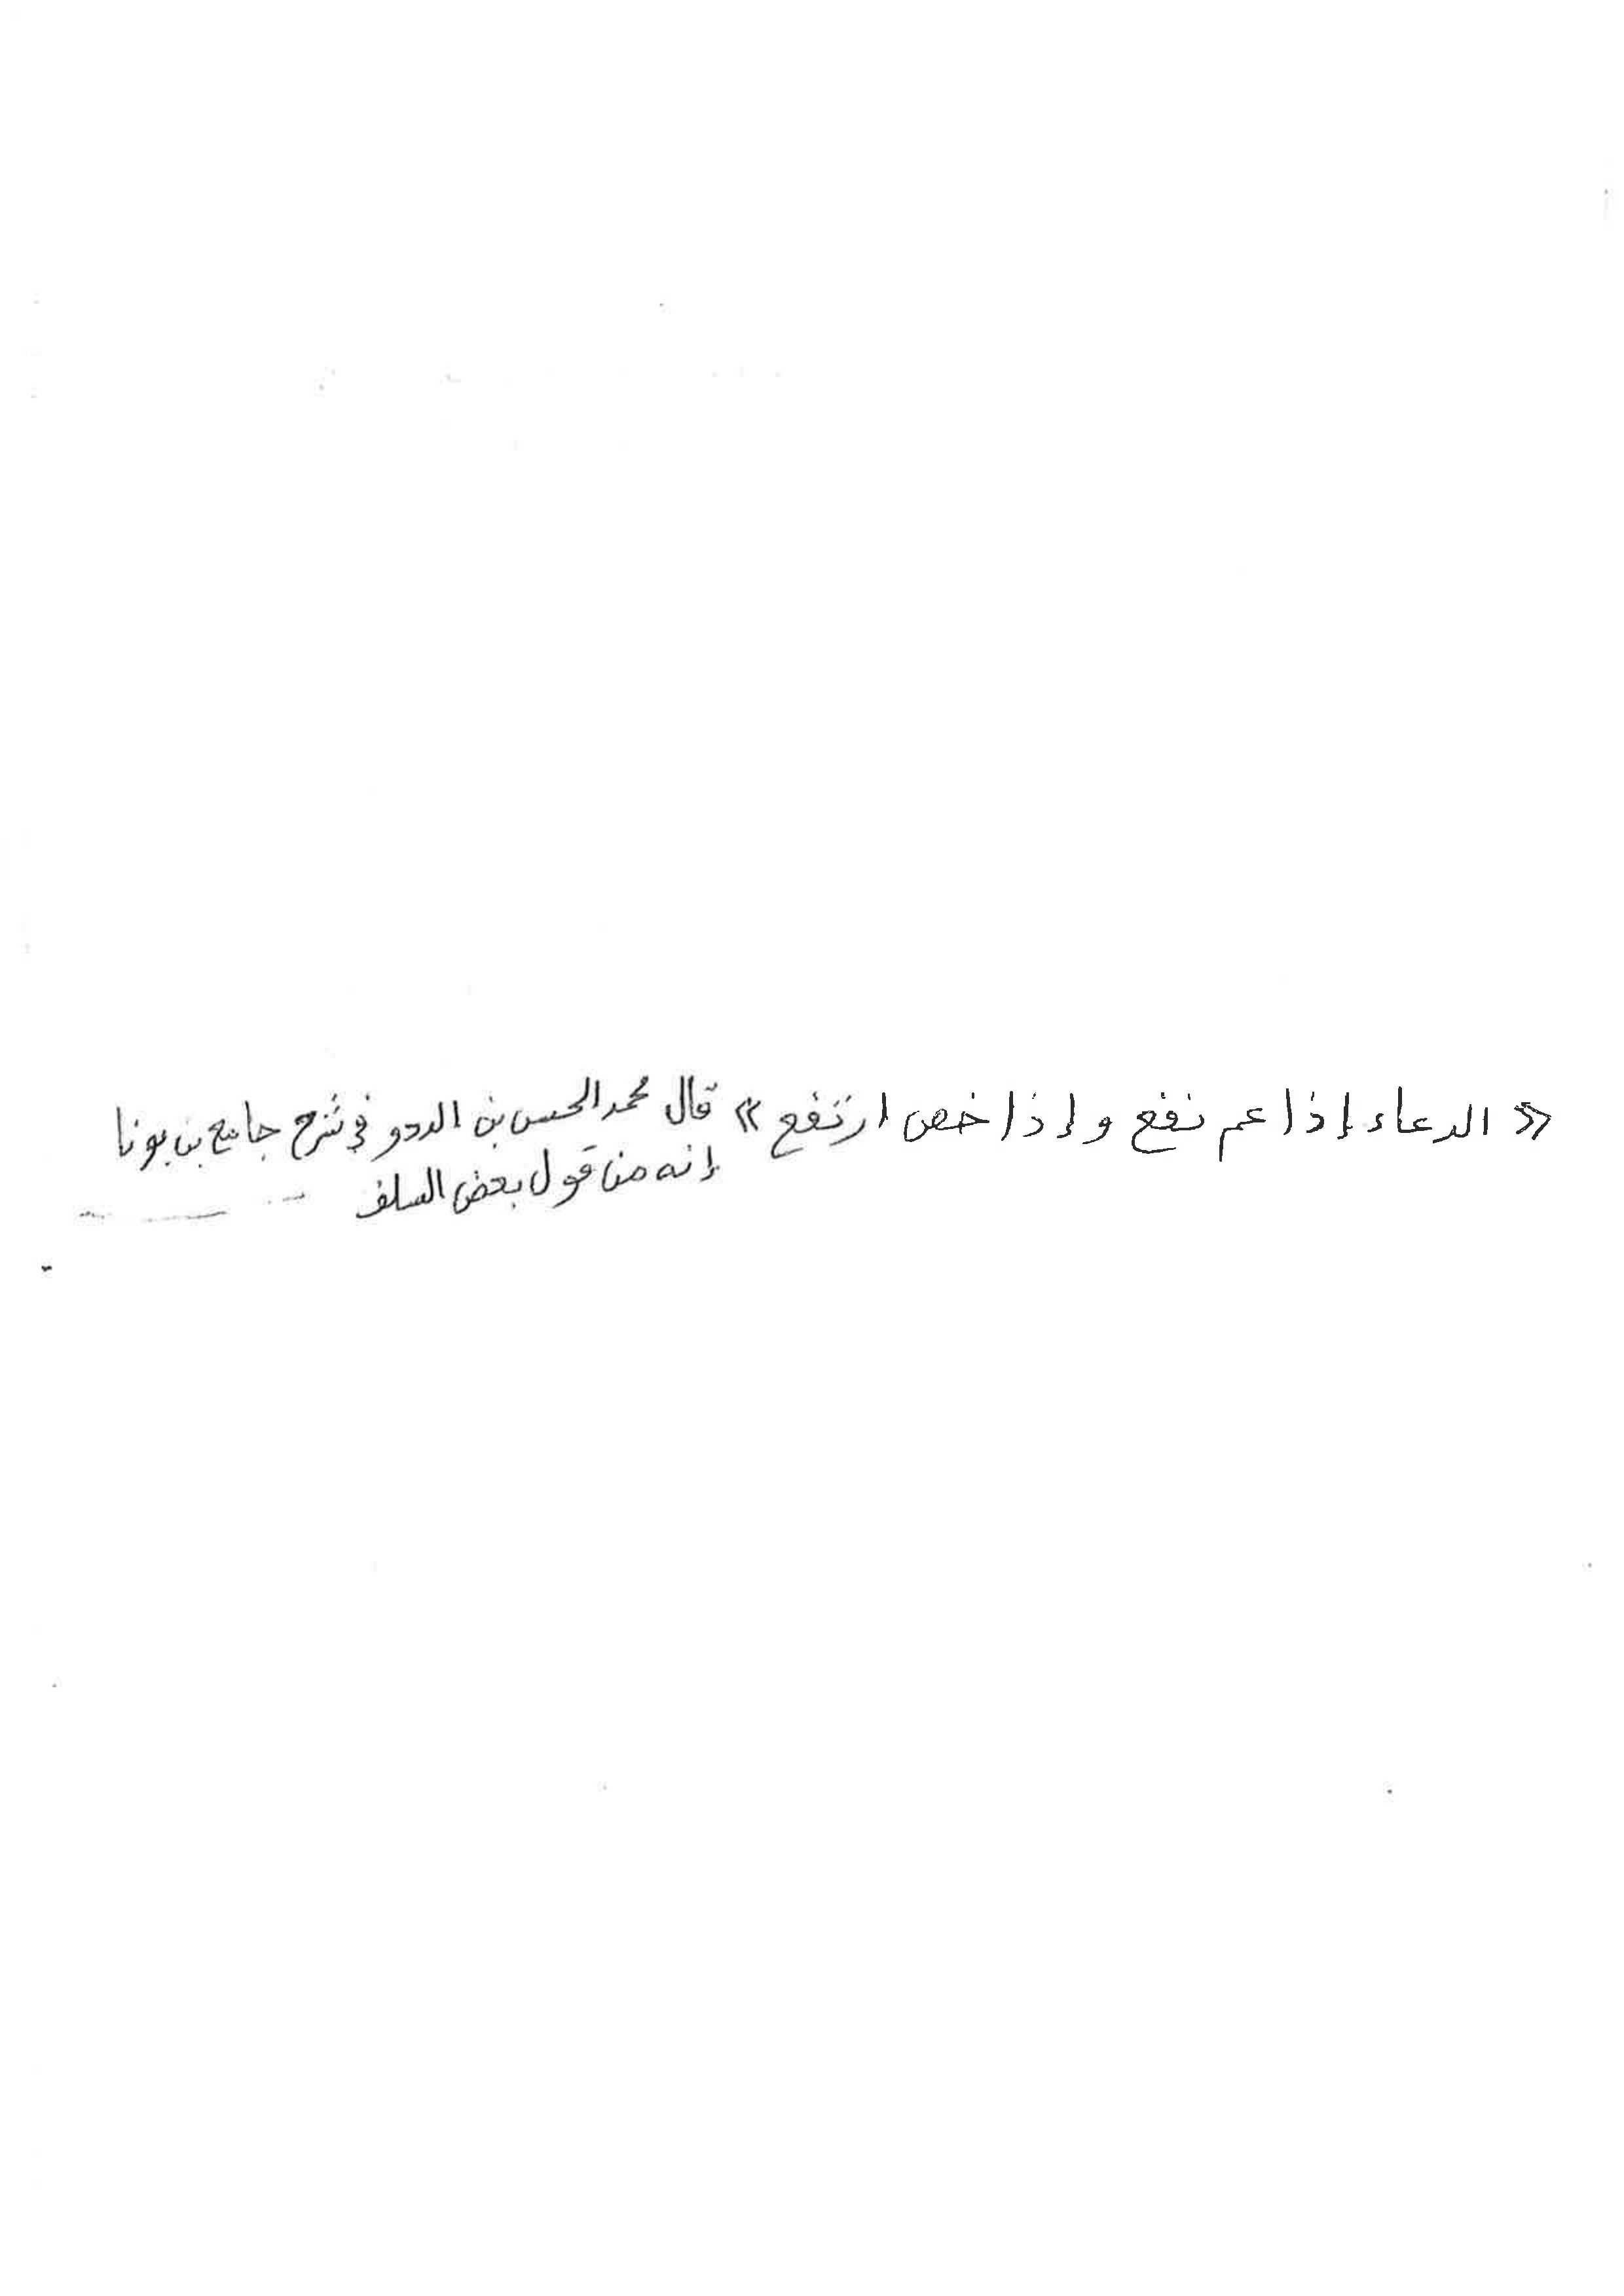 « الدعاء إذا عم نفع وإذا خص ارتفع » قال محمد الحسن بن الددو في شرح جامع بن بونا
إنه من قول بعض السلف